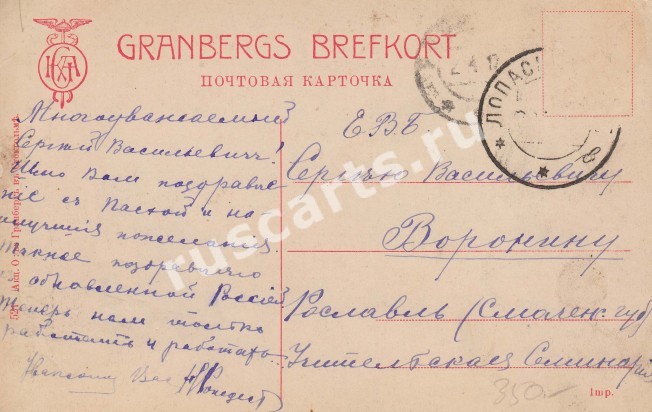 GRANBERGS BREFKORT
ПОЧТОВАЯ КАРТОЧКА
ЛОПАС
Многоуважаемый
Сергѣй Васильевич!
Шлю Вам поздравле
ніе съ Пасхой и на
илучшія пожеланія.
Также поздравляю
с обновленной Россіей
Теперь нам только
работать и работать
Е В Б
Сергѣю Васильевичу
Воронину
Рославль (Смолен. губ)
Учительская Семинарія
350-
Imp.
ruscarts.ru